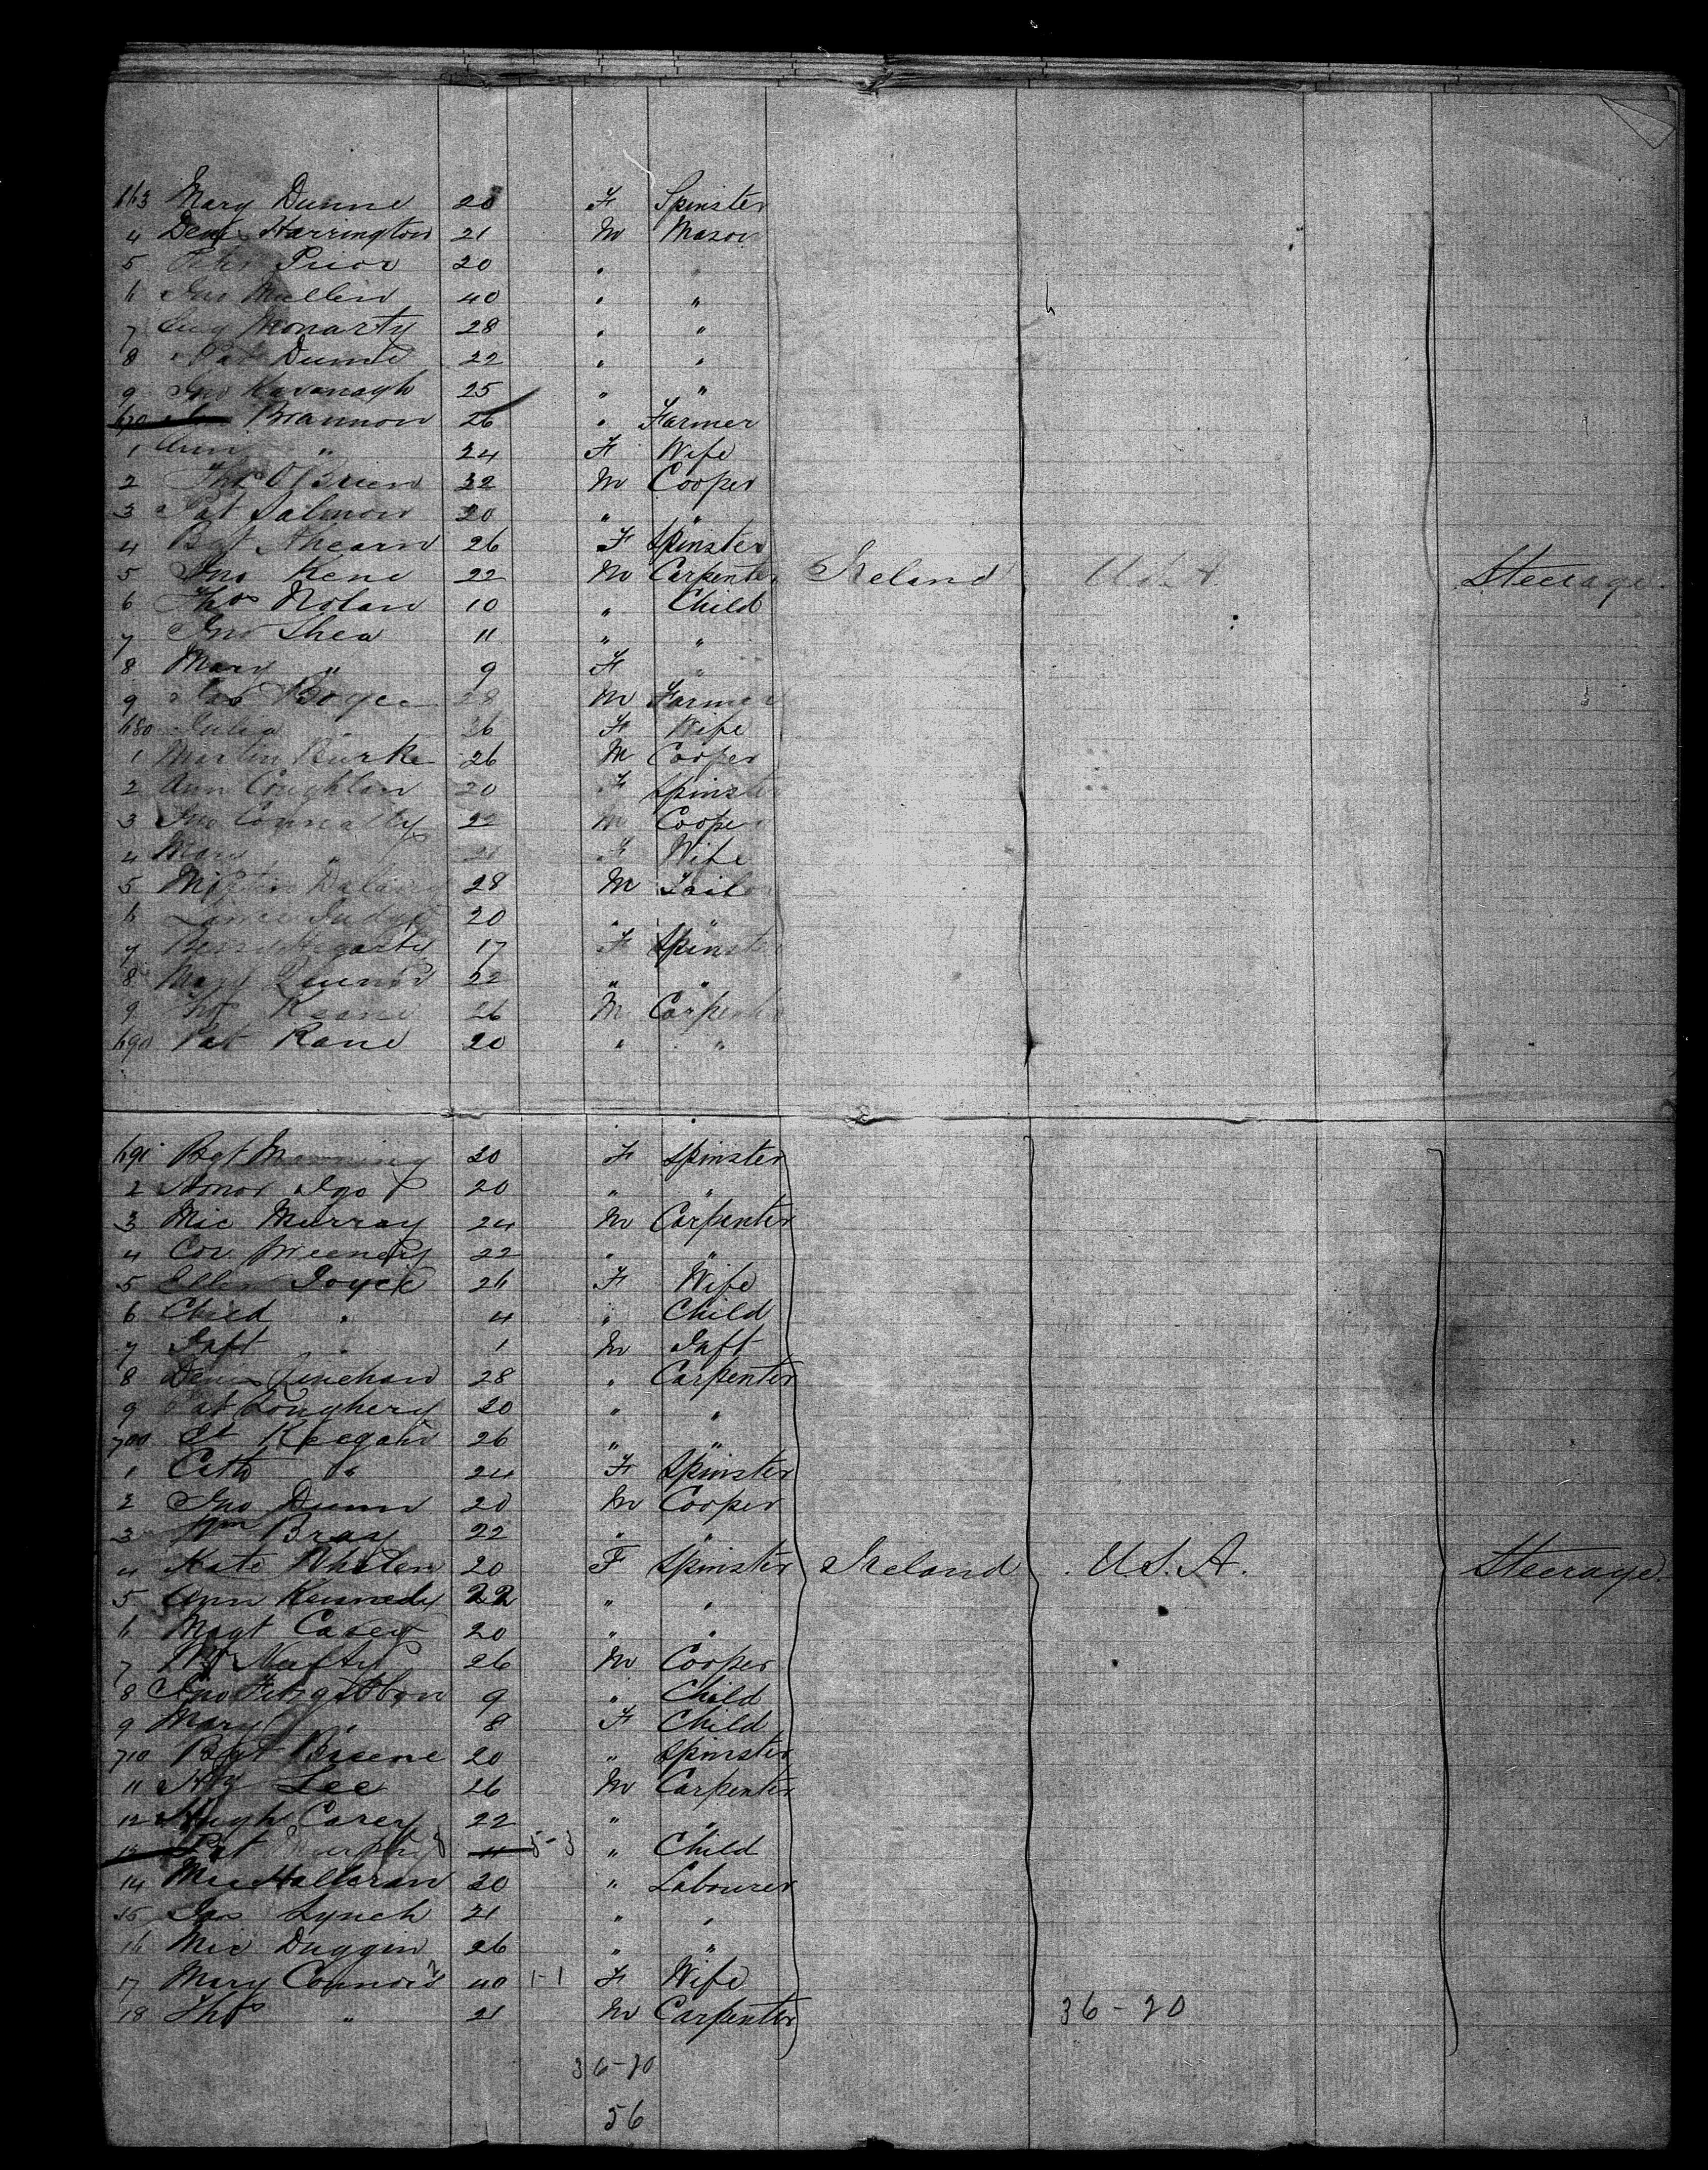 663 Mary Dunne 20 F Spinster
4 Denis Harrington 21 M Mason
5 Prior 20 "
6 Jno Mullen 40 " "
7 Eug Monarty 28 " "
8 Pat Dunne 22 " "
9 Jno Kavanagh 25 " "
670 Brannon 26 " Farmer
1 Ann " 24 F Wife
2 Thos O'Brien 32 M Cooper
3 Pat Salmon 20 " "
4 Bgt Ahearn 26 F Spinster
5 Jno Kene 22 M Carpenter Ireland U.S.A Steerage
6 Thos Nolan 10 " Child
7 Jno Shea 11 " "
8 Mary " 9 F "
9 Boyce 28 M Farmer
680 Julia 26 F Wife
1 Martin Burke 26 M Cooper
2 Ann Coughlan 20 F Spinster
3 Jno Connally 22 M Cooper
4 Mary " 21 F Wife
5 28 M Tailor
6 Judge 20 " "
7 Hegarty 17 F Spinster
8 Mary 22 " "
9 Keane 26 M Carpenter
690 Pat Kane 20 " "
691 Bgt Manning 20 F Spinster
2 Honor Igo 20 " "
3 Mic Murray 24 M Carpenter
4 Cor 22 " "
5 Ellen Joyce 26 F Wife
6 Child " 4 " Child
7 Inft " 1 M Inft
8 Denis Linehan 28 " Carpenter
9 Pat Loughery 20 " "
700 Keegan 26 " "
1 Cath " 24 F Spinster
2 Jno Dunn 20 M Cooper
3 Wm Bray 22 " "
4 Kate Whelen 20 F Spinster Ireland U.S.A. Steerage.
5 Ann Kennedy 22 " "
6 Magt Casey 20 " "
7 26 M Cooper
8 Jno Fitzgibbon 9 " Child
9 Mary " 8 F Child
710 Bgt Breene 20 " Spinster
11 Hy Lee 26 M Carpenter
12 Hugh Carey 22 " "
13 Pat Murphy 11 5-3 " Child
14 Mic Halloran 20 " Labourer
15 Jas Lynch 21 " "
16 Mic Duggin 26 " "
17 Mary Connors 40 1-1 F Wife
18 Thos " 21 M Carpenter 36-20
36-20
56